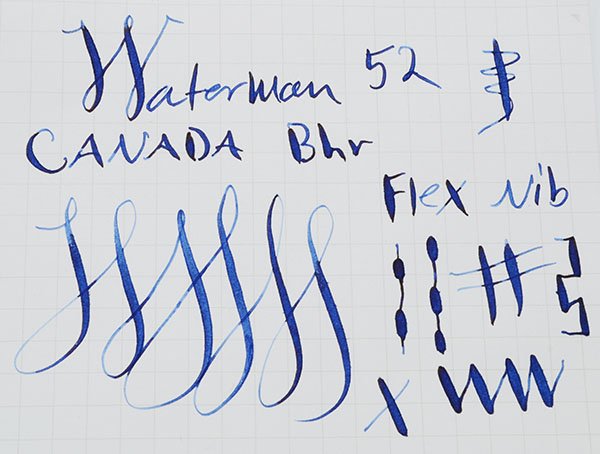 Waterman 52
CANADA Bhr
Flex Nib